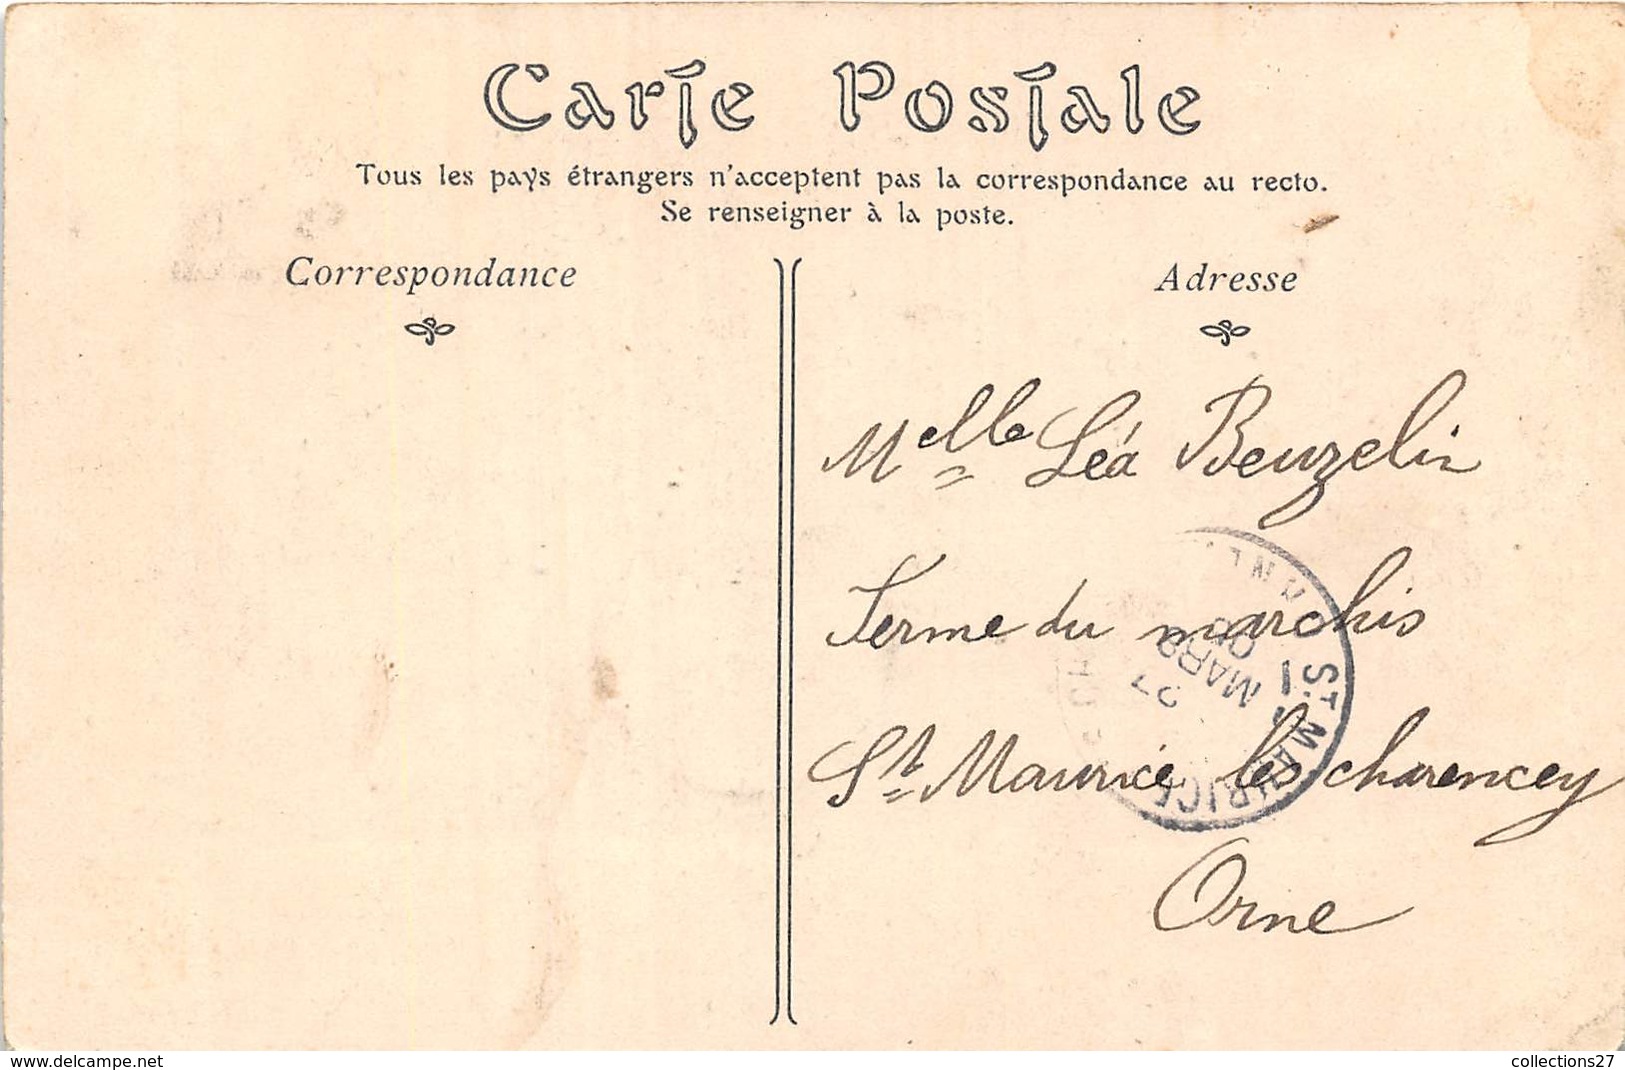 Carte Postale
Tous les pays étrangers n'acceptent pas la correspondance au recto.
Se renseigner à la poste.
Correspondance
Adresse
Melle Léa Beuzelin
Ferme du marchis
St Maurice les charencey
Orne
ST MAURICE
27
MARS
ORNE
www.delcampe.net
collections27